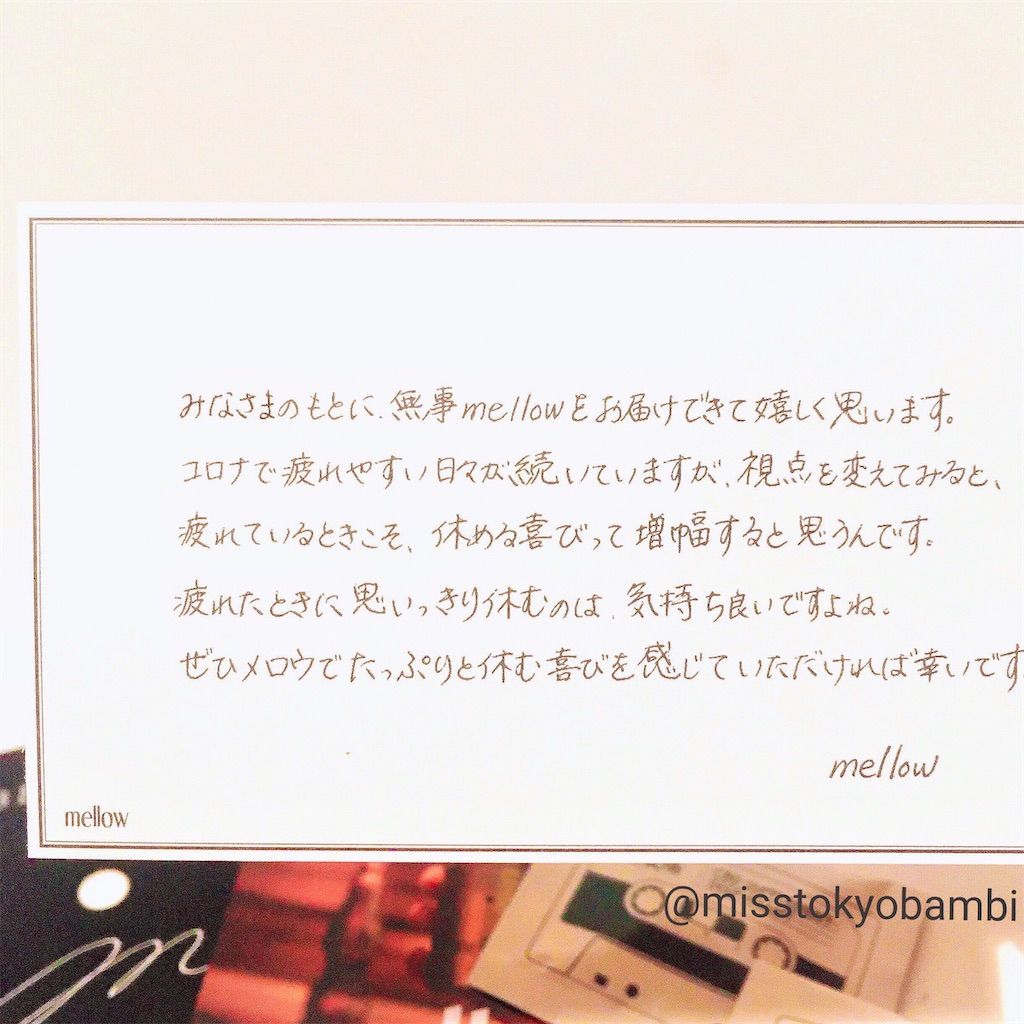 みなさまのもとに、無事mellowをお届けできて嬉しく思います。
コロナで疲れやすい日々が続いていますが、視点を変えてみると、
疲れているときこそ、休める喜びって増幅すると思うんです。
疲れたときに思いっきり休むのは、気持ち良いですよね。
ぜひメロウでたっぷりと休む喜びを感じていただければ幸いです
mellow
mellow
@misstokyobambi